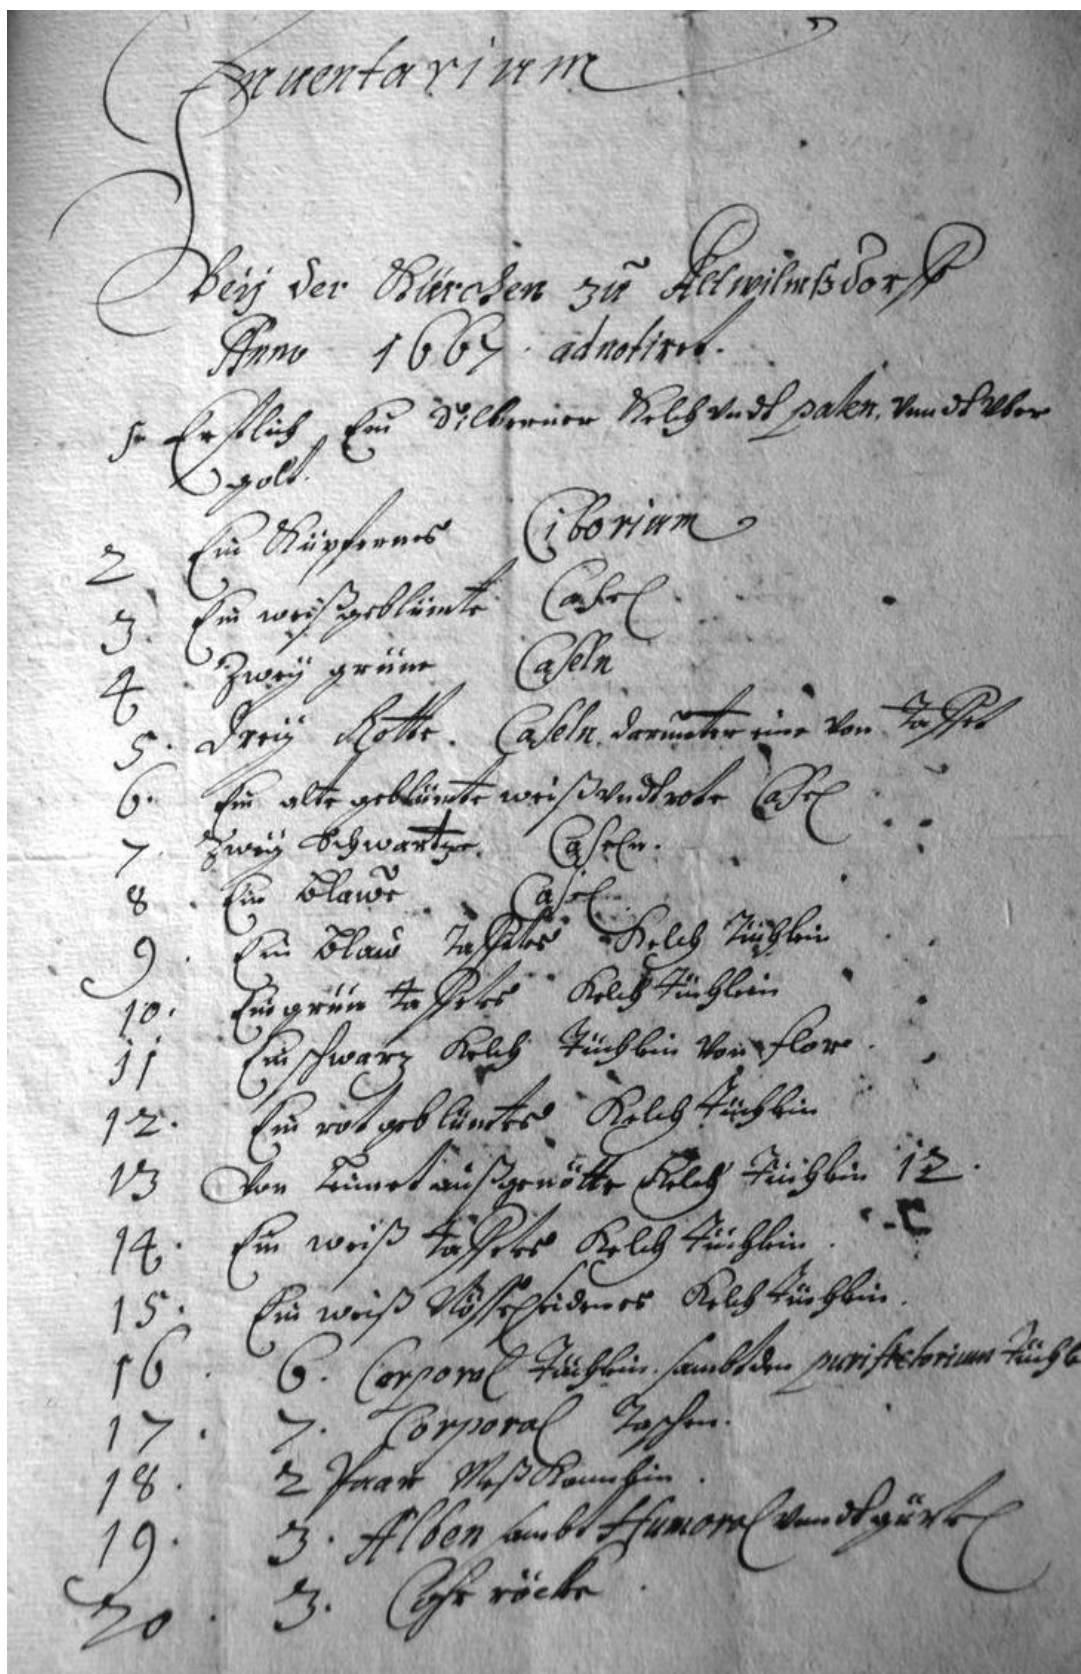 Inuentarium
Beÿ der Kürchen zu Altwilmßdorff
Anno 1667 adnotiret.
1. Erstlich Ein Silberner Kelch vndt paten, vnndt Vber
golt.
2 Ein Küpfernes Ciborium
3. Ein weißgeblümte Casel
4 Zweÿ grüne Caseln
5. Dreÿ Rotte. Caseln darunter eine von Taffet
6. Ein alte geblümte weiß vndt rote Casel
7. Zweÿ Schwartze Caseln.
8 Ein blawe Casel
9. Ein blaw Taffetes Kelch Tüchlein
10. Ein grün taffetes Kelch Tüchlein
11 Ein schwarz Kelch Tüchlein von flor.
12. Ein rot geblümtes Kelch Tüchlein
13 Von außgenötte Kelch Tüchlein 12.
14. Ein weiß taffetes Kelch Tüchlein.
15. Ein weiß Kelch Tüchlein.
16. 6. Corporal Tüchlein. sambt den purificatorium Tüchl
17. 7. Corporal Taschen.
18. 2 Paar Meß Kannlein.
19. 3. Alben sambt Humoral vnndt gürtel
20. 3. röcke